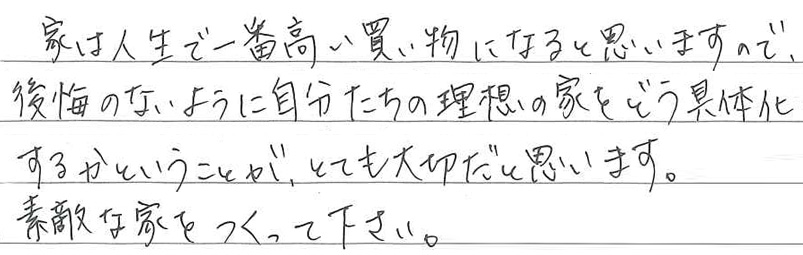 家は人生で一番高い買い物になると思いますので、
後悔のないように自分たちの理想の家をどう具体化
するかということが、とても大切だと思います。
素敵な家をつくって下さい。